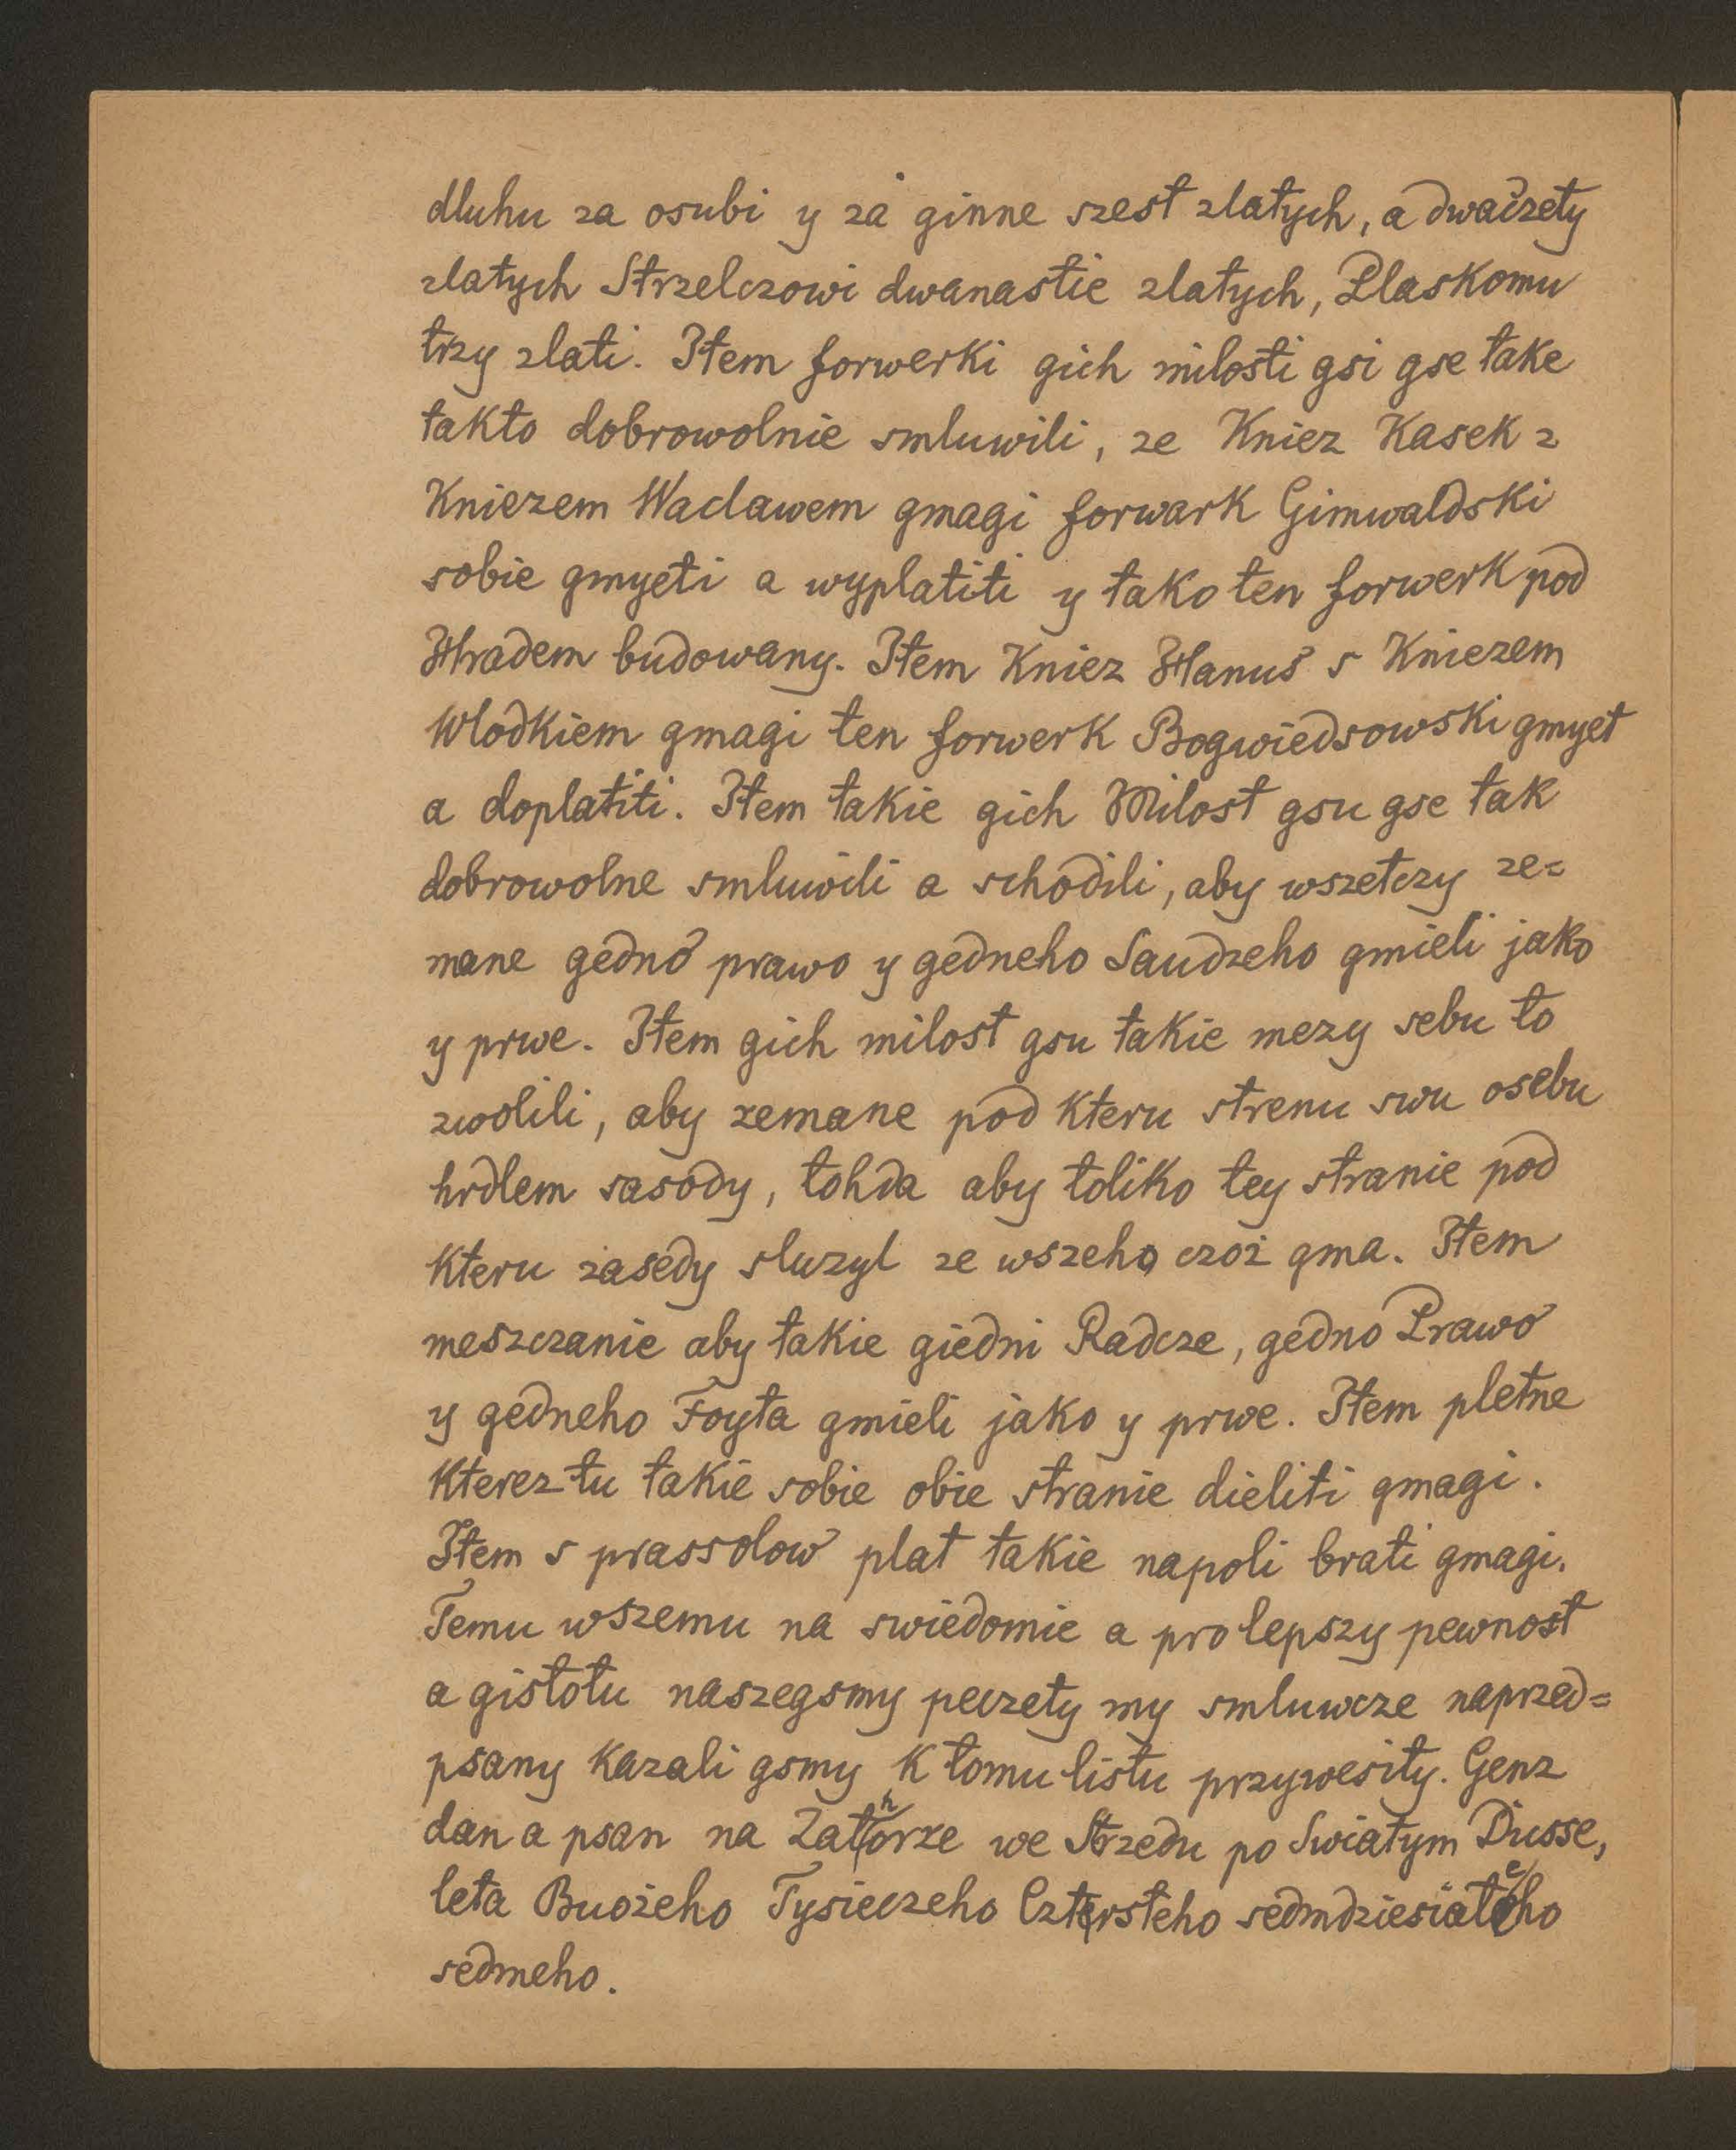 dluhu za osubi y za ginne szest zlatych, a dwaczety
zlatych Strzelczowi dwanastie zlatych, Plaskomu
trzy zlati. Item forwerki gich milosti gsi gse take
takto dobrowolnie smluwili, ze Kniez Kasek z
Kniezem Waclawem gmagi forwark Gimwaldski
sobie gmyeti a wyplatiti y tako ten forwerk pod
Hradem budowany. Item Kniez Hanuš s Kniezem
Wlodkiem gmagi ten forwerk Bogwiedsowski gmyet
a doplatiti. Item takie gich Milost gsu gse tak
dobrowolne smluwili a schodili, aby wszetczy ze=
mane gedno prawo y gedneho Saudzeho gmieli jako
y prwe. Item gich milost gsu takie mezy sebu to
zwolili, aby zemane pod kteru strenu swu osebu
hrdlem sasody, tohda aby toliko tey stranie pod
kteru zasedy sluzyl ze wszeho czoż gma. Item
meszczanie aby takie giedni Radcze, gedno Prawo
y gedneho Foyta gmieli jako y prwe. Item pletne
kterez-tu takie sobie obie stranie dieliti gmagi.
Item s prassolow plat takie napoli brati gmagi.
Temu wszemu na swiedomie a pro lepszy pewnost
a gistotu naszegsmy peczety my smluwcze naprzed=
psany kazali gsmy k tomu listu przywesity. Genz
dan a psan na Zathorze we Strzedu po Swiatym Dusse,
leta Buożeho Tysieczeho Cztersteho sedmdziesiateho
sedmeho.